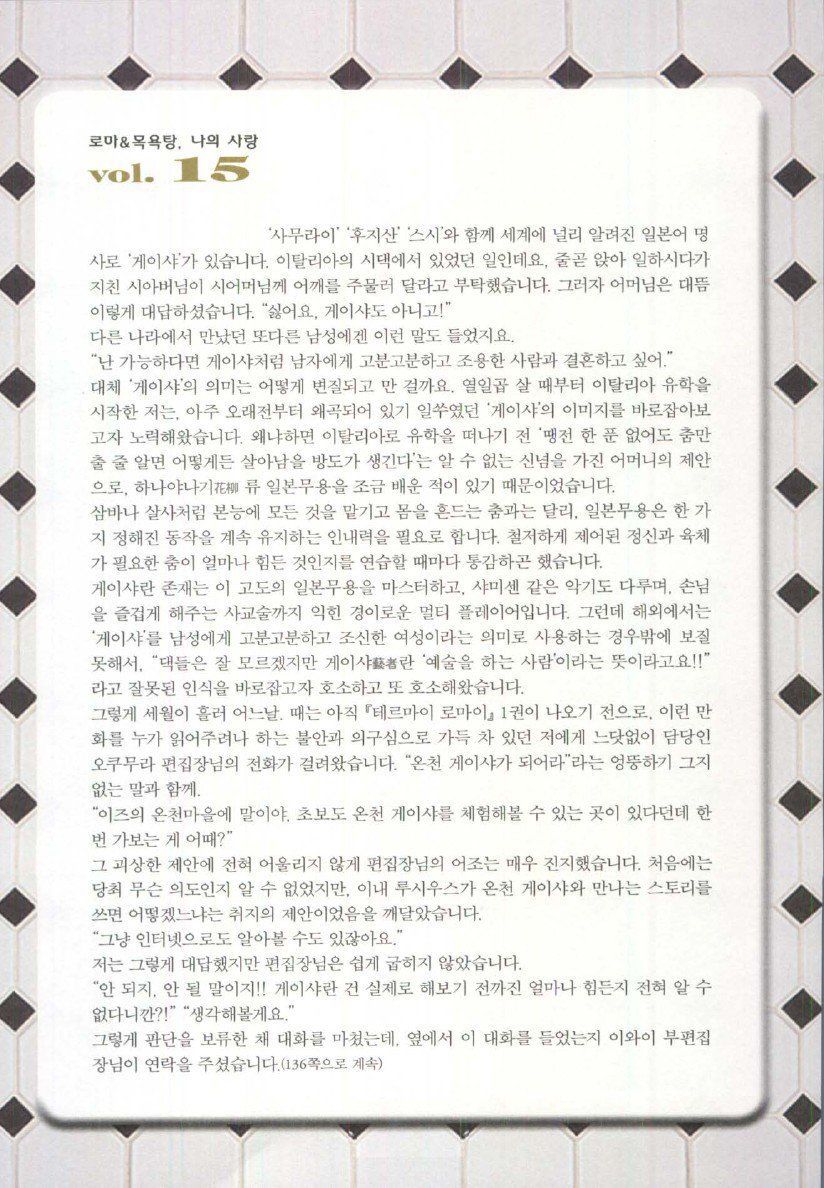 로마&목욕탕, 나의 사랑
vol. 15
'사무라이' '후지산' '스시'와 함께 세계에 널리 알려진 일본어 명
사로 '게이샤'가 있습니다. 이탈리아의 시댁에서 있었던 일인데요, 줄곧 앉아 일하시다가
지친 시아버님이 시어머님께 어깨를 주물러 달라고 부탁했습니다. 그러자 어머님은 대뜸
이렇게 대답하셨습니다. "싫어요, 게이샤도 아니고!"
다른 나라에서 만났던 또다른 남성에겐 이런 말도 들었지요.
"난 가능하다면 게이샤처럼 남자에게 고분고분하고 조용한 사람과 결혼하고 싶어."
대체 '게이샤'의 의미는 어떻게 변질되고 만 걸까요. 열일곱 살 때부터 이탈리아 유학을
시작한 저는, 아주 오래전부터 왜곡되어 있기 일쑤였던 '게이샤'의 이미지를 바로잡아보
고자 노력해왔습니다. 왜냐하면 이탈리아로 유학을 떠나기 전 '땡전 한 푼 없어도 춤만
출 줄 알면 어떻게든 살아남을 방도가 생긴다'는 알 수 없는 신념을 가진 어머니의 제안
으로, 하나야나기花柳 류 일본무용을 조금 배운 적이 있기 때문이었습니다.
삼바나 살사처럼 본능에 모든 것을 맡기고 몸을 흔드는 춤과는 달리, 일본무용은 한 가
지 정해진 동작을 계속 유지하는 인내력을 필요로 합니다. 철저하게 제어된 정신과 육체
가 필요한 춤이 얼마나 힘든 것인지를 연습할 때마다 통감하곤 했습니다.
게이샤란 존재는 이 고도의 일본무용을 마스터하고, 샤미센 같은 악기도 다루며, 손님
을 즐겁게 해주는 사교술까지 익힌 경이로운 멀티 플레이어입니다. 그런데 해외에서는
'게이샤'를 남성에게 고분고분하고 조신한 여성이라는 의미로 사용하는 경우밖에 보질
못해서, "댁들은 잘 모르겠지만 게이샤藝者란 '예술을 하는 사람'이라는 뜻이라고요!!"
라고 잘못된 인식을 바로잡고자 호소하고 또 호소해왔습니다.
그렇게 세월이 흘러 어느날. 때는 아직 『테르마이 로마이』 1권이 나오기 전으로, 이런 만
화를 누가 읽어주려나 하는 불안과 의구심으로 가득 차 있던 저에게 느닷없이 담당인
오쿠무라 편집장님의 전화가 걸려왔습니다. "온천 게이샤가 되어라"라는 엉뚱하기 그지
없는 말과 함께.
"이즈의 온천마을에 말이야, 초보도 온천 게이샤를 체험해볼 수 있는 곳이 있다던데 한
번 가보는 게 어때?"
그 괴상한 제안에 전혀 어울리지 않게 편집장님의 어조는 매우 진지했습니다. 처음에는
당최 무슨 의도인지 알 수 없었지만, 이내 루시우스가 온천 게이샤와 만나는 스토리를
쓰면 어떻겠느냐는 취지의 제안이었음을 깨달았습니다.
"그냥 인터넷으로도 알아볼 수도 있잖아요."
저는 그렇게 대답했지만 편집장님은 쉽게 굽히지 않았습니다.
"안 되지, 안 될 말이지!! 게이샤란 건 실제로 해보기 전까진 얼마나 힘든지 전혀 알 수
없다니깐?!" "생각해볼게요."
그렇게 판단을 보류한 채 대화를 마쳤는데, 옆에서 이 대화를 들었는지 이와이 부편집
장님이 연락을 주셨습니다.(136쪽으로 계속)